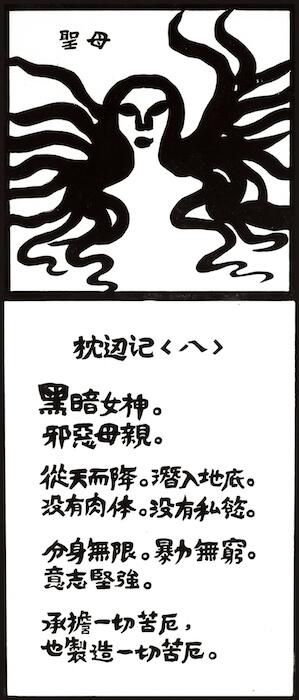 聖母
枕边记〈八〉
黑暗女神。
邪惡母親。
從天而降。潛入地底。
没有肉体。没有私慾。
分身無限。暴力無窮。
意志堅強。
承擔一切苦厄，
也製造一切苦厄。